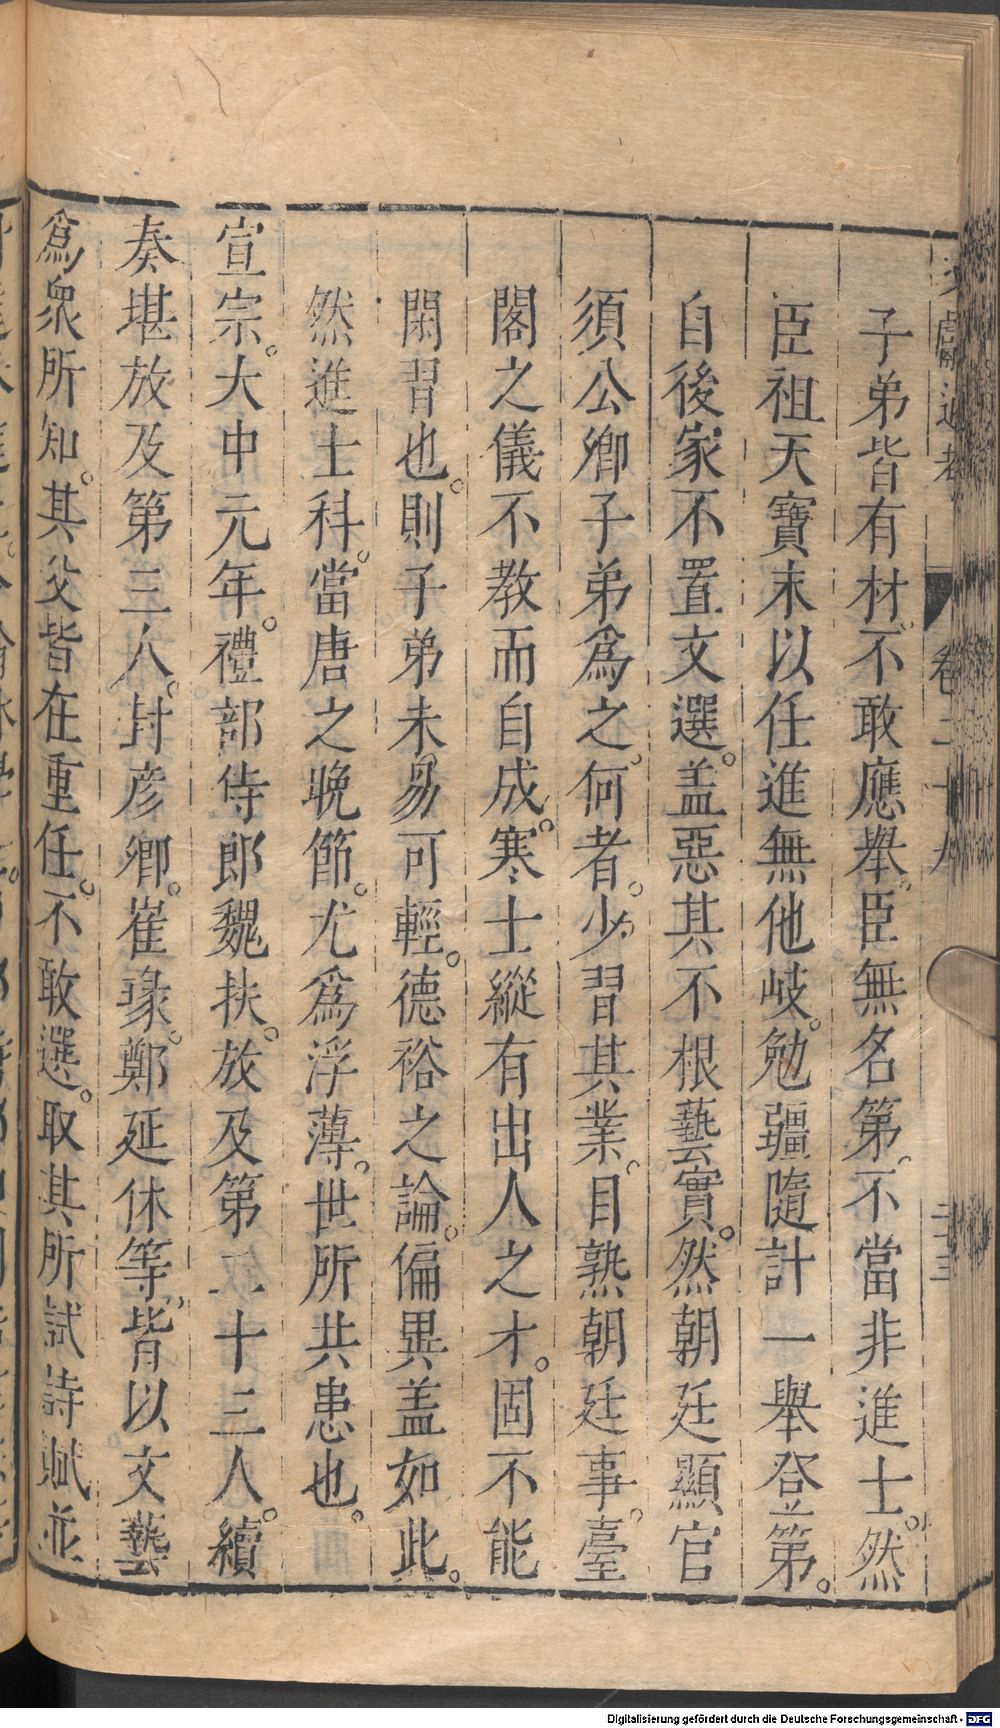 子弟皆有材。不敢應舉。臣無名第。不當非進士。然
臣祖天寶末以任進無他岐。勉疆隨計一舉登第。
自後家不置文選。盖惡其不根藝實。然朝廷顯官
須公卿子弟爲之。何者。少習其業。目熟朝廷事。臺
閣之儀不教而自成。寒士縱有出人之才。固不能
閑習也。則子弟未易可輕。德裕之論。偏異盖如此。
然進士科。當唐之晚節。尤爲浮薄。世所共患也。
宣宗。大中元年。禮部侍郎魏扶。放及第二十三人。續
奏堪放及第三人。封彥卿。崔瑑。鄭延休等。皆以文藝
爲衆所知。其父皆在重任。不敢選。取其所試詩賦並
卷二十九
三十三
Digitalisierung gefördert durch die Deutsche Forschungsgemeinschaft - DFG